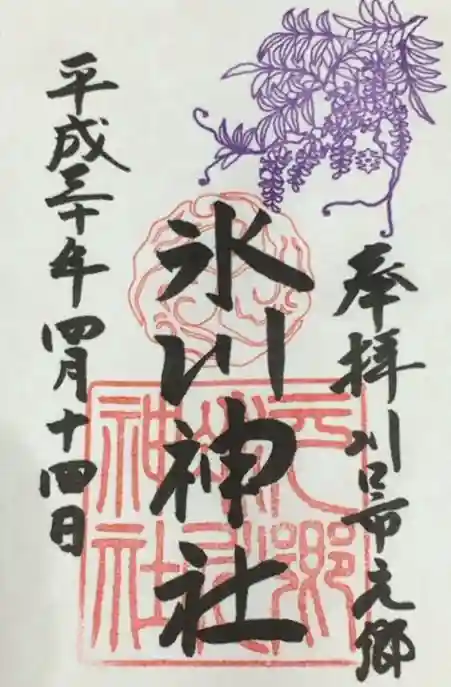 奉拝 川口市元郷
氷川神社
平成三十年四月十四日
元郷氷川神社